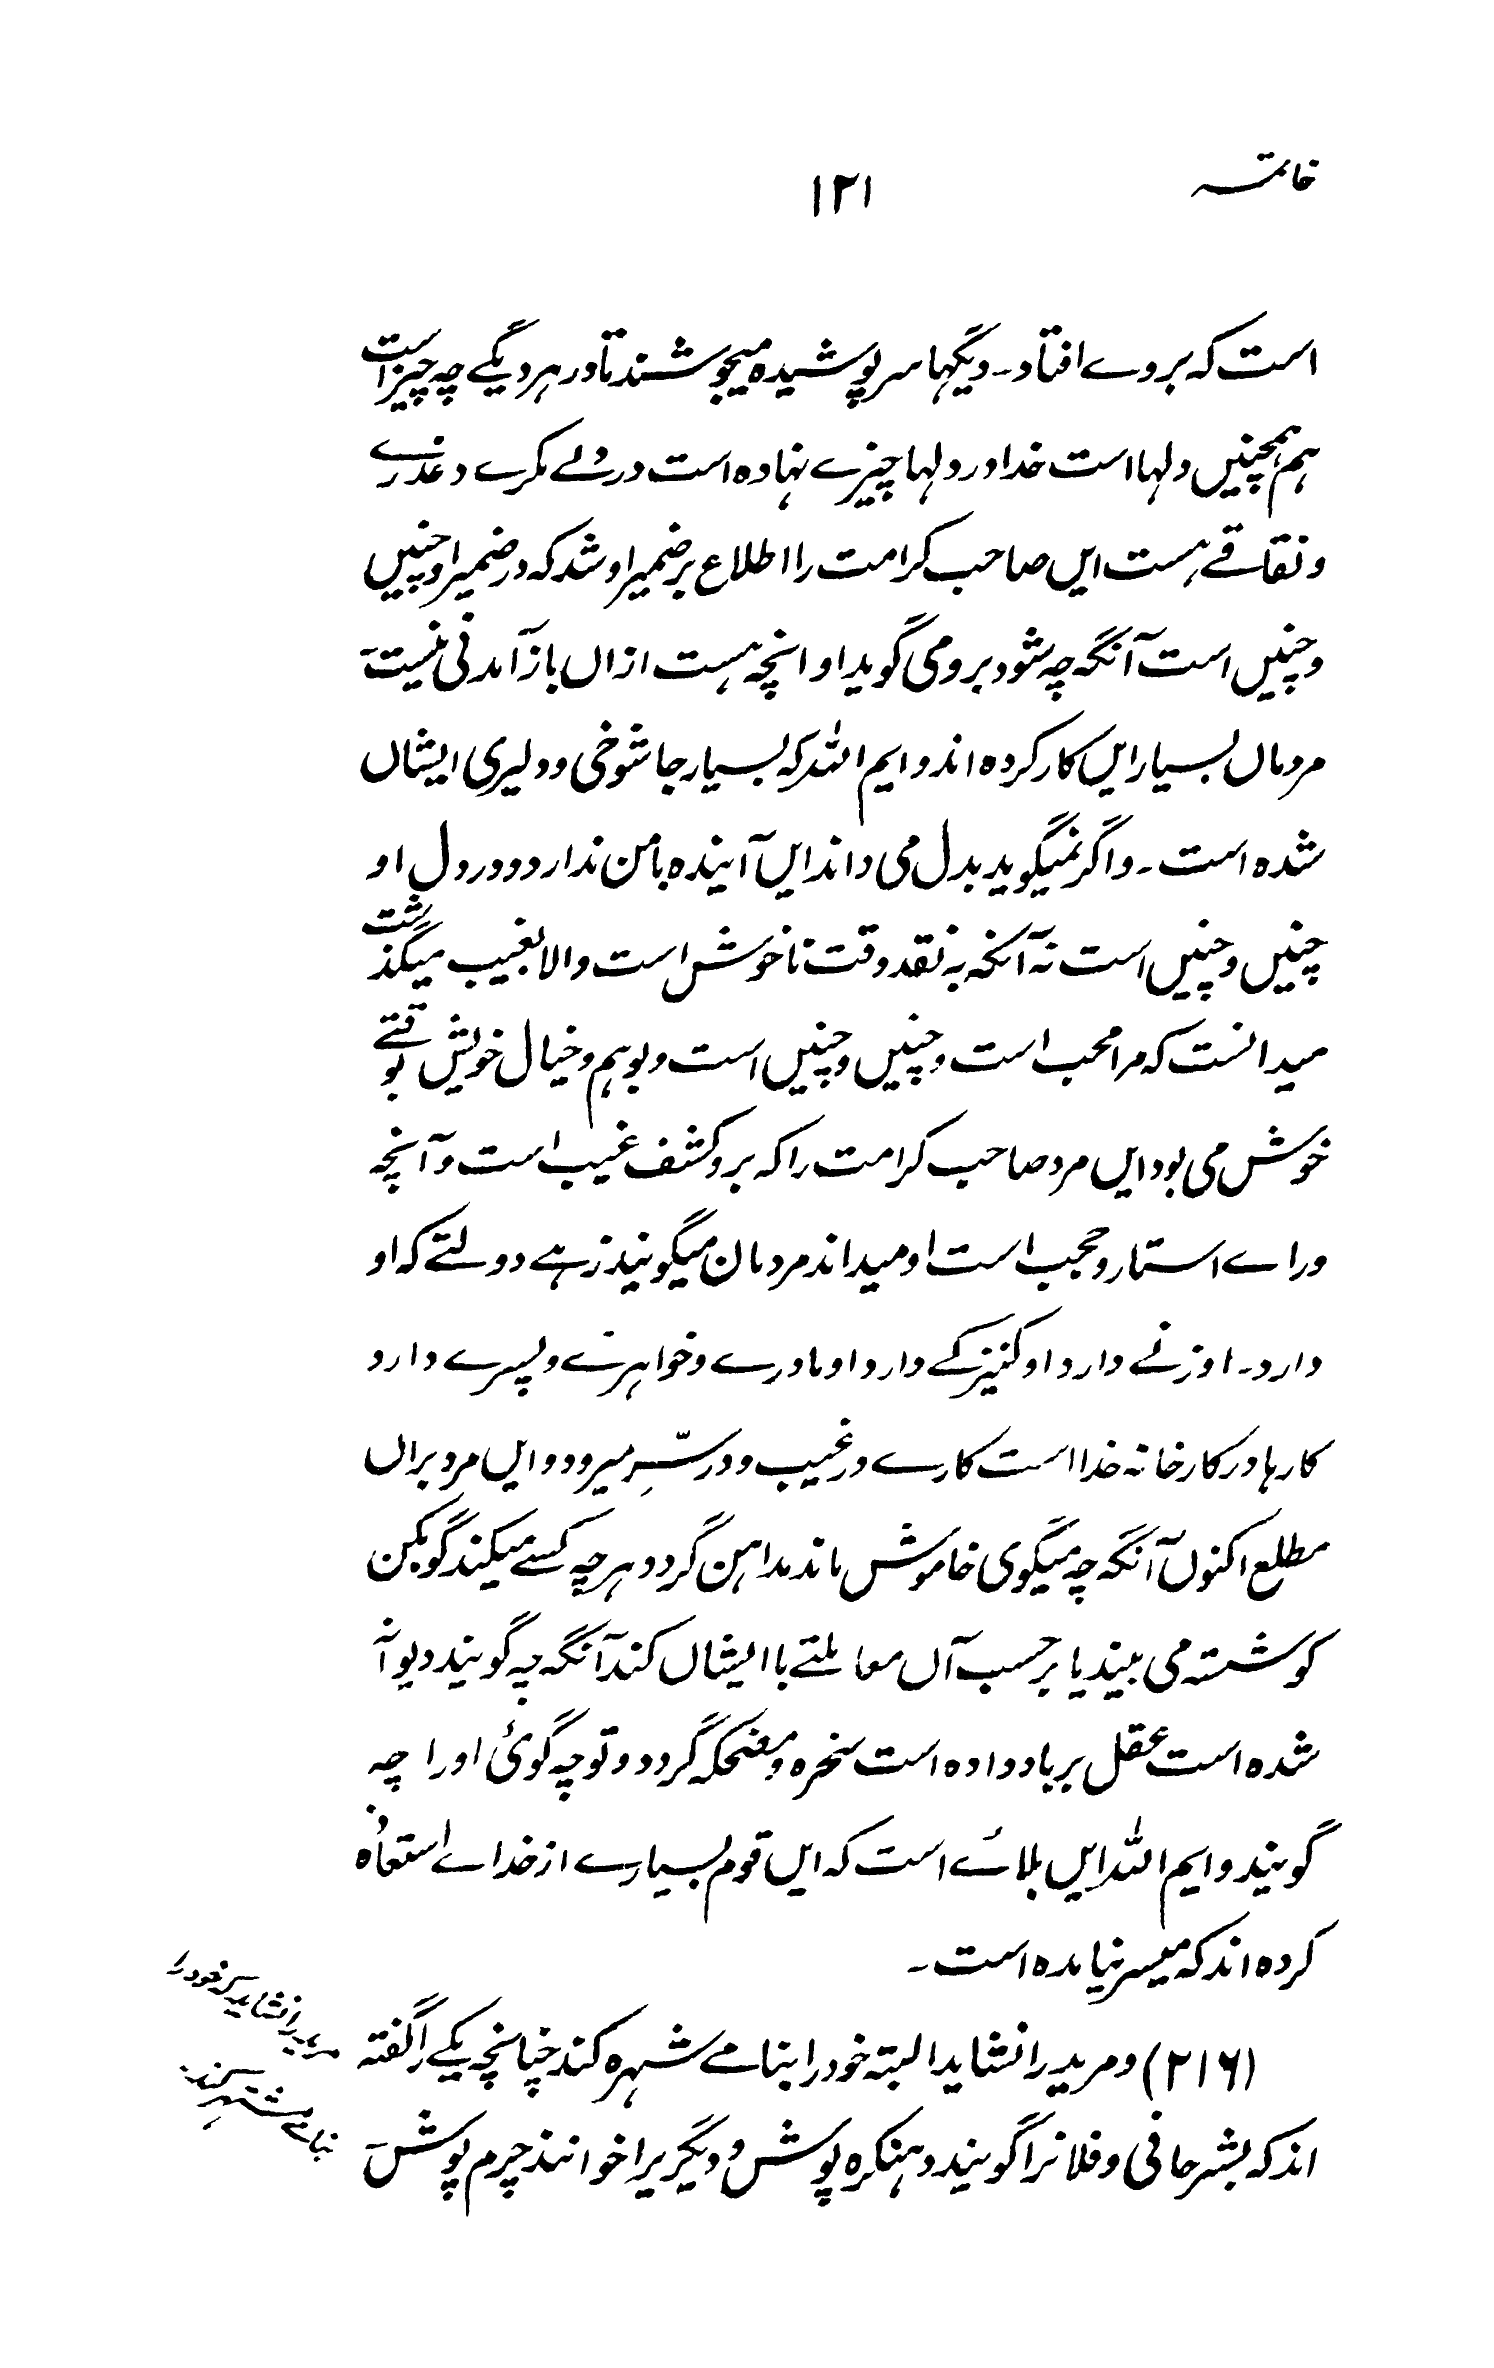 خاتمہ
۱۲۱
است که بروے افتاد۔ دیگہا سر پوشیده میجوشند تا در ہر دیگے چہ چیز است
ہم ہمچنیں دلہا است خدا در دلہا چیزے نہاده است در دلے مکرے و غدرے
و نفاقے ہست ایں صاحب کرامت را اطلاع بر ضمیر او شد کہ در ضمیر او چنیں
و چنیں است آنگہ چہ شود برو می گوید او انچہ ہست ازاں باز آمدنی نیست
مرد ماں بسیار ایں کار کرده اند و ایم اللہ کہ بسیار جا شوخی و دلیری ایشاں
شده است۔ و اگر نمیگوید بدل می داند ایں آینده با من ندارد و در دل او
چنیں و چنیں است نہ آنکہ بہ نقد وقت ناخوش است والا بغیب میگذشت
میدانست کہ مرا محب است و چنیں و چنیں است و بوہم و خیال خویش بوقتے
خوش می بود ایں مرد صاحب کرامت را کہ برو کشف غیب است و آنچہ
وراے استار و حجب است او میداند مردمان میگویند زہے دولتے کہ او
دارد۔ او زنے دارد او کنیزکے دارد او مادرے و خواہرے و پسرے دارد
کارہا در کارخانہ خدا است کارے در غیب و در سرِّ میرود و ایں مرد براں
مطلع اکنوں آنگہ چہ میگوی خاموش ماند مداہن گردد ہرچہ کسے میکند گو بکن
گو شستہ می بیند یا بر حسب آں معاملتے با ایشاں کند آنگہ چہ گویند دیوانہ
شده است عقل بر باد داده است سخره و مضحکہ گردد و تو چہ گوئ او را چہ
گویند و ایم اللہ ایں بلائے است کہ ایں قوم بسیارے از خداے استعاذه
کرده اند کہ میسر نیامده است۔
(۲۱۶) و مرید را نشاید البتہ خود را بنامے شہره کند چنانچہ یکے را گفتہ
اند کہ بشر حافی و فلانرا گویند دہنکره پوش و دیگریرا خوانند چرم پوش
مرید را نشاید کہ خود را
بنامے مشتہر کند۔